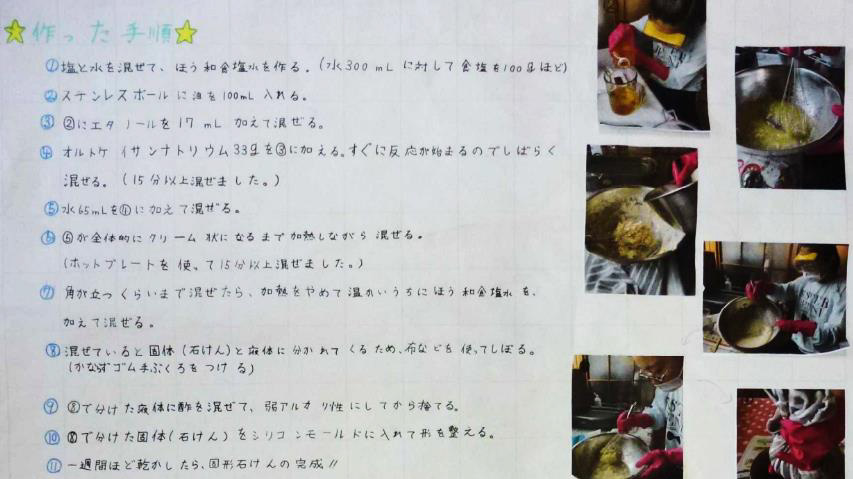 作った手順
①塩と水を混ぜて、ほう和食塩水を作る。(水300mLに対して食塩を100gほど)
②ステンレスボールに油を100mL入れる。
③②にエタノールを17mL加えて混ぜる。
④オルトケイサンナトリウム33gを③に加える。すぐに反応が始まるのでしばらく
混ぜる。(15分以上混ぜました。)
⑤水65mLを④に加えて混ぜる。
⑥⑤が全体的にクリーム状になるまで加熱しながら混ぜる。
(ホットプレートを使って15分以上混ぜました。)
⑦角が立つくらいまで混ぜたら、加熱をやめて温かいうちにほう和食塩水を、
加えて混ぜる。
⑧混ぜていると固体(石けん)と液体に分かれてくるため、布などを使ってしぼる。
(かならずゴム手ぶくろをつける)
⑨⑧で分けた液体に酢を混ぜて、弱アルカリ性にしてから捨てる。
⑩⑧で分けた固体(石けん)をシリコンモールドに入れて形を整える。
⑪一週間ほど乾かしたら、固形石けんの完成!!